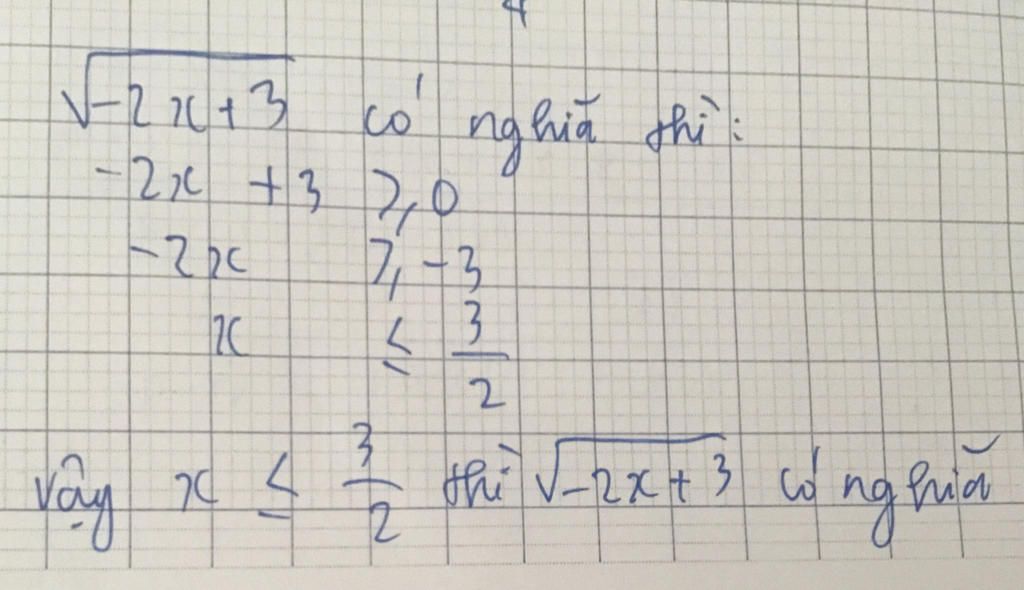 √-2x+3 có nghĩa thì:
-2x +3 ≥ 0
-2x ≥ -3
x ≤ 3/2
Vậy x ≤ 3/2 thì √-2x+3 có nghĩa